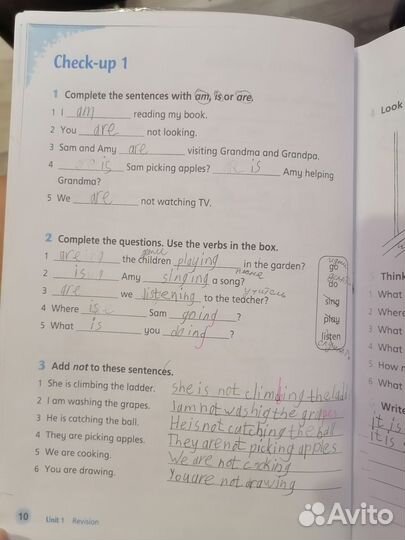 Check-up 1
1 Complete the sentences with am, is or are.
1 I am reading my book.
2 You are not looking.
3 Sam and Amy are visiting Grandma and Grandpa.
4 is Sam picking apples? is Amy helping
Grandma?
5 We are not watching TV.
2 Complete the questions. Use the verbs in the box.
1 are the children playing in the garden?
2 is Amy singing a song?
3 are we listening to the teacher?
учитель
4 Where is Sam going?
5 What is you doing?
go
do
sing
play
listen
3 Add not to these sentences.
1 She is climbing the ladder. She is not climbing the ladd
2 I am washing the grapes. I am not washig the grapes
3 He is catching the ball. He is not catching the ball
4 They are picking apples. They are not picking apples
5 We are cooking. We are not cooking
6 You are drawing. You are not drawing
10 Unit 1 Revision
Look
Think
1 What
2 Where
3 What
4 What
5 How
6 What
Write
It is
It is
Avito